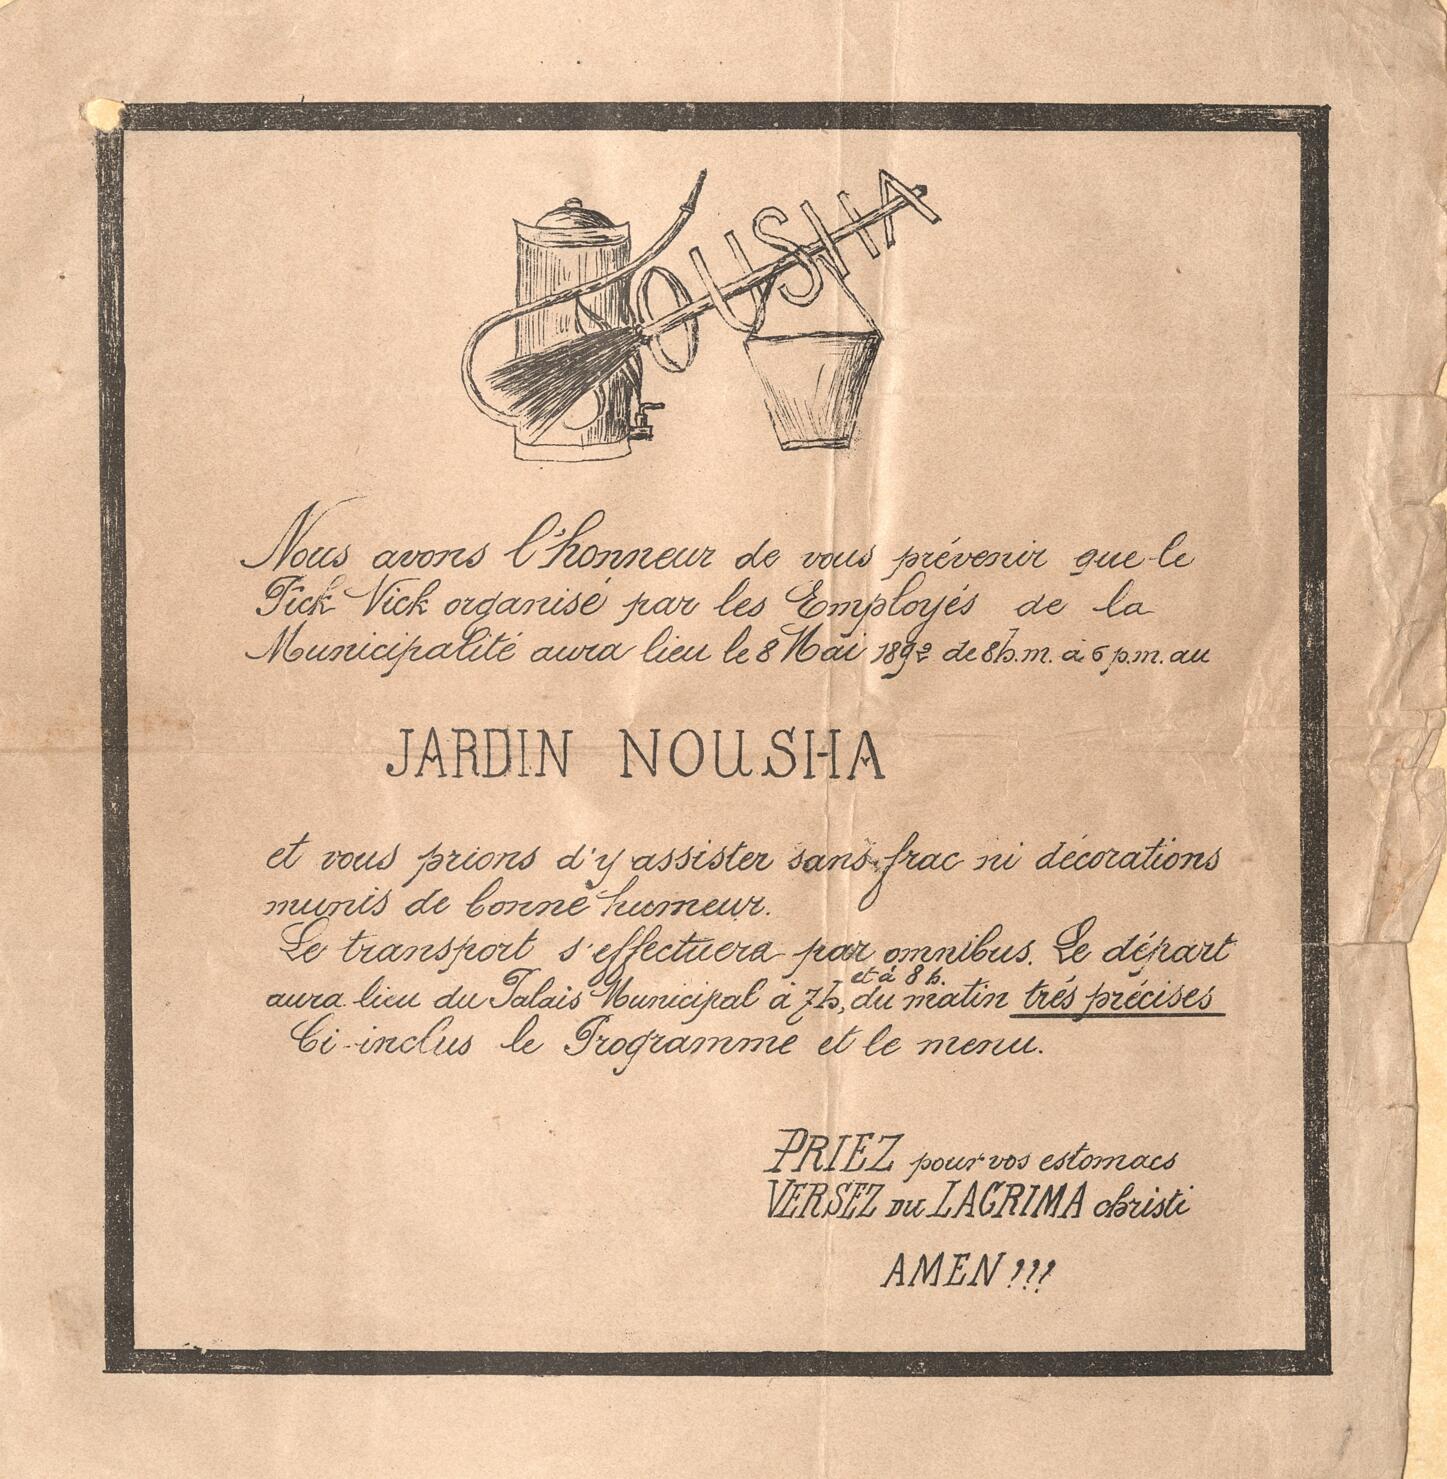 OUSHA
Nous avons l'honneur de vous prévenir que le
Pick Nick organisé par les Employés de la
Municipalité aura lieu le 8 Mai 1892 de 8 h.m. à 6 p.m. au
JARDIN NOUSHA
et vous prions d'y assister sans frac ni décorations
munis de bonne humeur.
Le transport s'effectuera par omnibus. Le départ
et à 8 h.
aura lieu du Palais Municipal à 7 h, du matin trés précises
Ci-inclus le Programme et le menu.
PRIEZ pour vos estomacs
VERSEZ DU LACRIMA christi
AMEN !!!